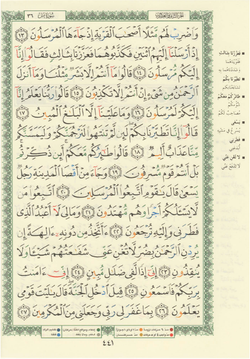 وَٱضْرِبْ لَهُم مَّثَلًا أَصْحَٰبَ ٱلْقَرْيَةِ إِذْ جَآءَهَا ٱلْمُرْسَلُونَ ١٣
إِذْ أَرْسَلْنَآ إِلَيْهِمُ ٱثْنَيْنِ فَكَذَّبُوهُمَا فَعَزَّزْنَا بِثَالِثٍ فَقَالُوٓا۟ إِنَّآ
إِلَيْكُم مُّرْسَلُونَ ١٤ قَالُوا۟ مَآ أَنتُمْ إِلَّا بَشَرٌ مِّثْلُنَا وَمَآ أَنزَلَ
ٱلرَّحْمَٰنُ مِن شَىْءٍ إِنْ أَنتُمْ إِلَّا تَكْذِبُونَ ١٥ قَالُوا۟ رَبُّنَا يَعْلَمُ إِنَّآ
إِلَيْكُمْ لَمُرْسَلُونَ ١٦ وَمَا عَلَيْنَآ إِلَّا ٱلْبَلَٰغُ ٱلْمُبِينُ ١٧
قَالُوٓا۟ إِنَّا تَطَيَّرْنَا بِكُمْ لَئِن لَّمْ تَنتَهُوا۟ لَنَرْجُمَنَّكُمْ وَلَيَمَسَّنَّكُم
مِّنَّا عَذَابٌ أَلِيمٌ ١٨ قَالُوا۟ طَٰٓئِرُكُم مَّعَكُمْ أَئِن ذُكِّرْتُم
بَلْ أَنتُمْ قَوْمٌ مُّسْرِفُونَ ١٩ وَجَآءَ مِنْ أَقْصَا ٱلْمَدِينَةِ رَجُلٌ
يَسْعَىٰ قَالَ يَٰقَوْمِ ٱتَّبِعُوا۟ ٱلْمُرْسَلِينَ ٢٠ ٱتَّبِعُوا۟ مَن
لَّا يَسْـَٔلُكُمْ أَجْرًا وَهُم مُّهْتَدُونَ ٢١ وَمَا لِىَ لَآ أَعْبُدُ ٱلَّذِى
فَطَرَنِى وَإِلَيْهِ تُرْجَعُونَ ٢٢ ءَأَتَّخِذُ مِن دُونِهِۦٓ ءَالِهَةً إِن
يُرِدْنِ ٱلرَّحْمَٰنُ بِضُرٍّ لَّا تُغْنِ عَنِّى شَفَٰعَتُهُمْ شَيْـًٔا وَلَا
يُنقِذُونِ ٢٣ إِنِّىٓ إِذًا لَّفِى ضَلَٰلٍ مُّبِينٍ ٢٤ إِنِّىٓ ءَامَنتُ
بِرَبِّكُمْ فَٱسْمَعُونِ ٢٥ قِيلَ ٱدْخُلِ ٱلْجَنَّةَ قَالَ يَٰلَيْتَ قَوْمِى
يَعْلَمُونَ ٢٦ بِمَا غَفَرَ لِى رَبِّى وَجَعَلَنِى مِنَ ٱلْمُكْرَمِينَ ٢٧
٤٤١